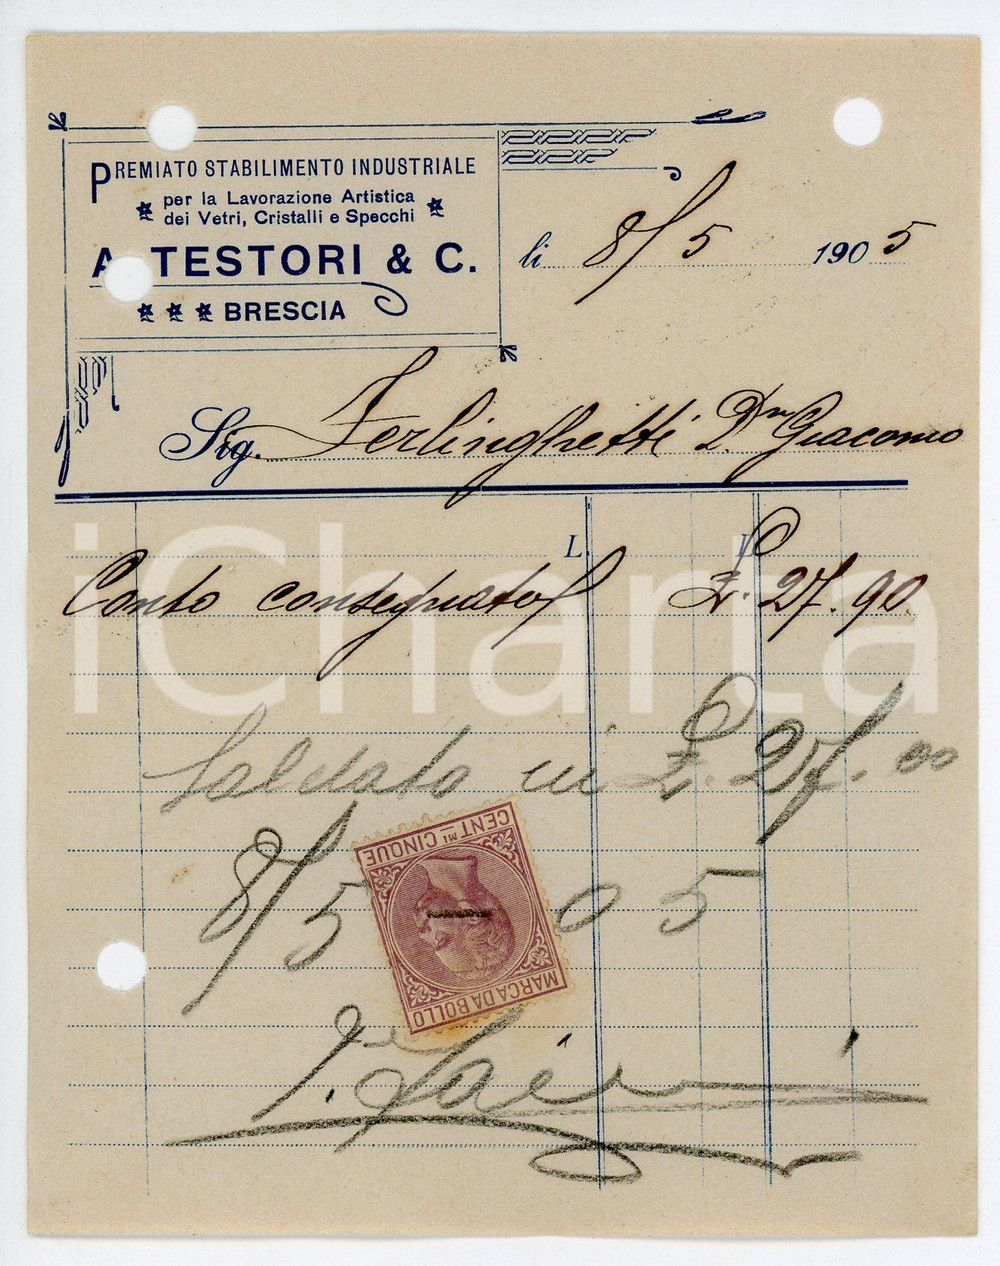 PREMIATO STABILIMENTO INDUSTRIALE
per la Lavorazione Artistica
dei Vetri, Cristalli e Specchi
A TESTORI & C.
BRESCIA
li 8/5 1905
Sig. Ferlinghetti Dn Giacomo
L. L
Conto consegnato £. 27.90
iCharta
Saldato in £. 27.00
8/5 05
CENT.MI CINQUE
MARCA DA BOLLO